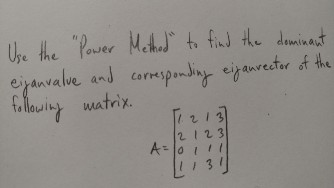 Use the "Power Method" to find the dominant
eiganvalue and corresponding eiganvector of the
following matrix.
A = [1 2 1 3
2 1 2 3
0 1 1 1
1 1 3 1]